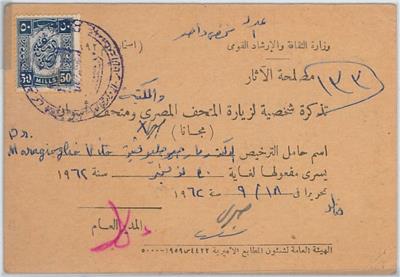 اعداد شخص واحد
وزارة الثقافة والإرشاد القومى
مصلحة الآثار
١٣٣
والمكتب
تذكرة شخصية لزيارة المتحف المصرى ومتحف
( مجانا )
Dr.
اسم حامل الترخيص
Maragioglio Vito
يسرى مفعولها لغاية ٣٠ نوفمبر سنة ١٩٦٢
تحريرا فى ١٨ / ٩ سنة ١٩٦٢
المدير العام
الهيئة العامة لشئون المطابع الأميرية ٤٤٢٢-١٩٥٩-٥٠٠٠
٥٠ ٥٠
50 MILLS 50